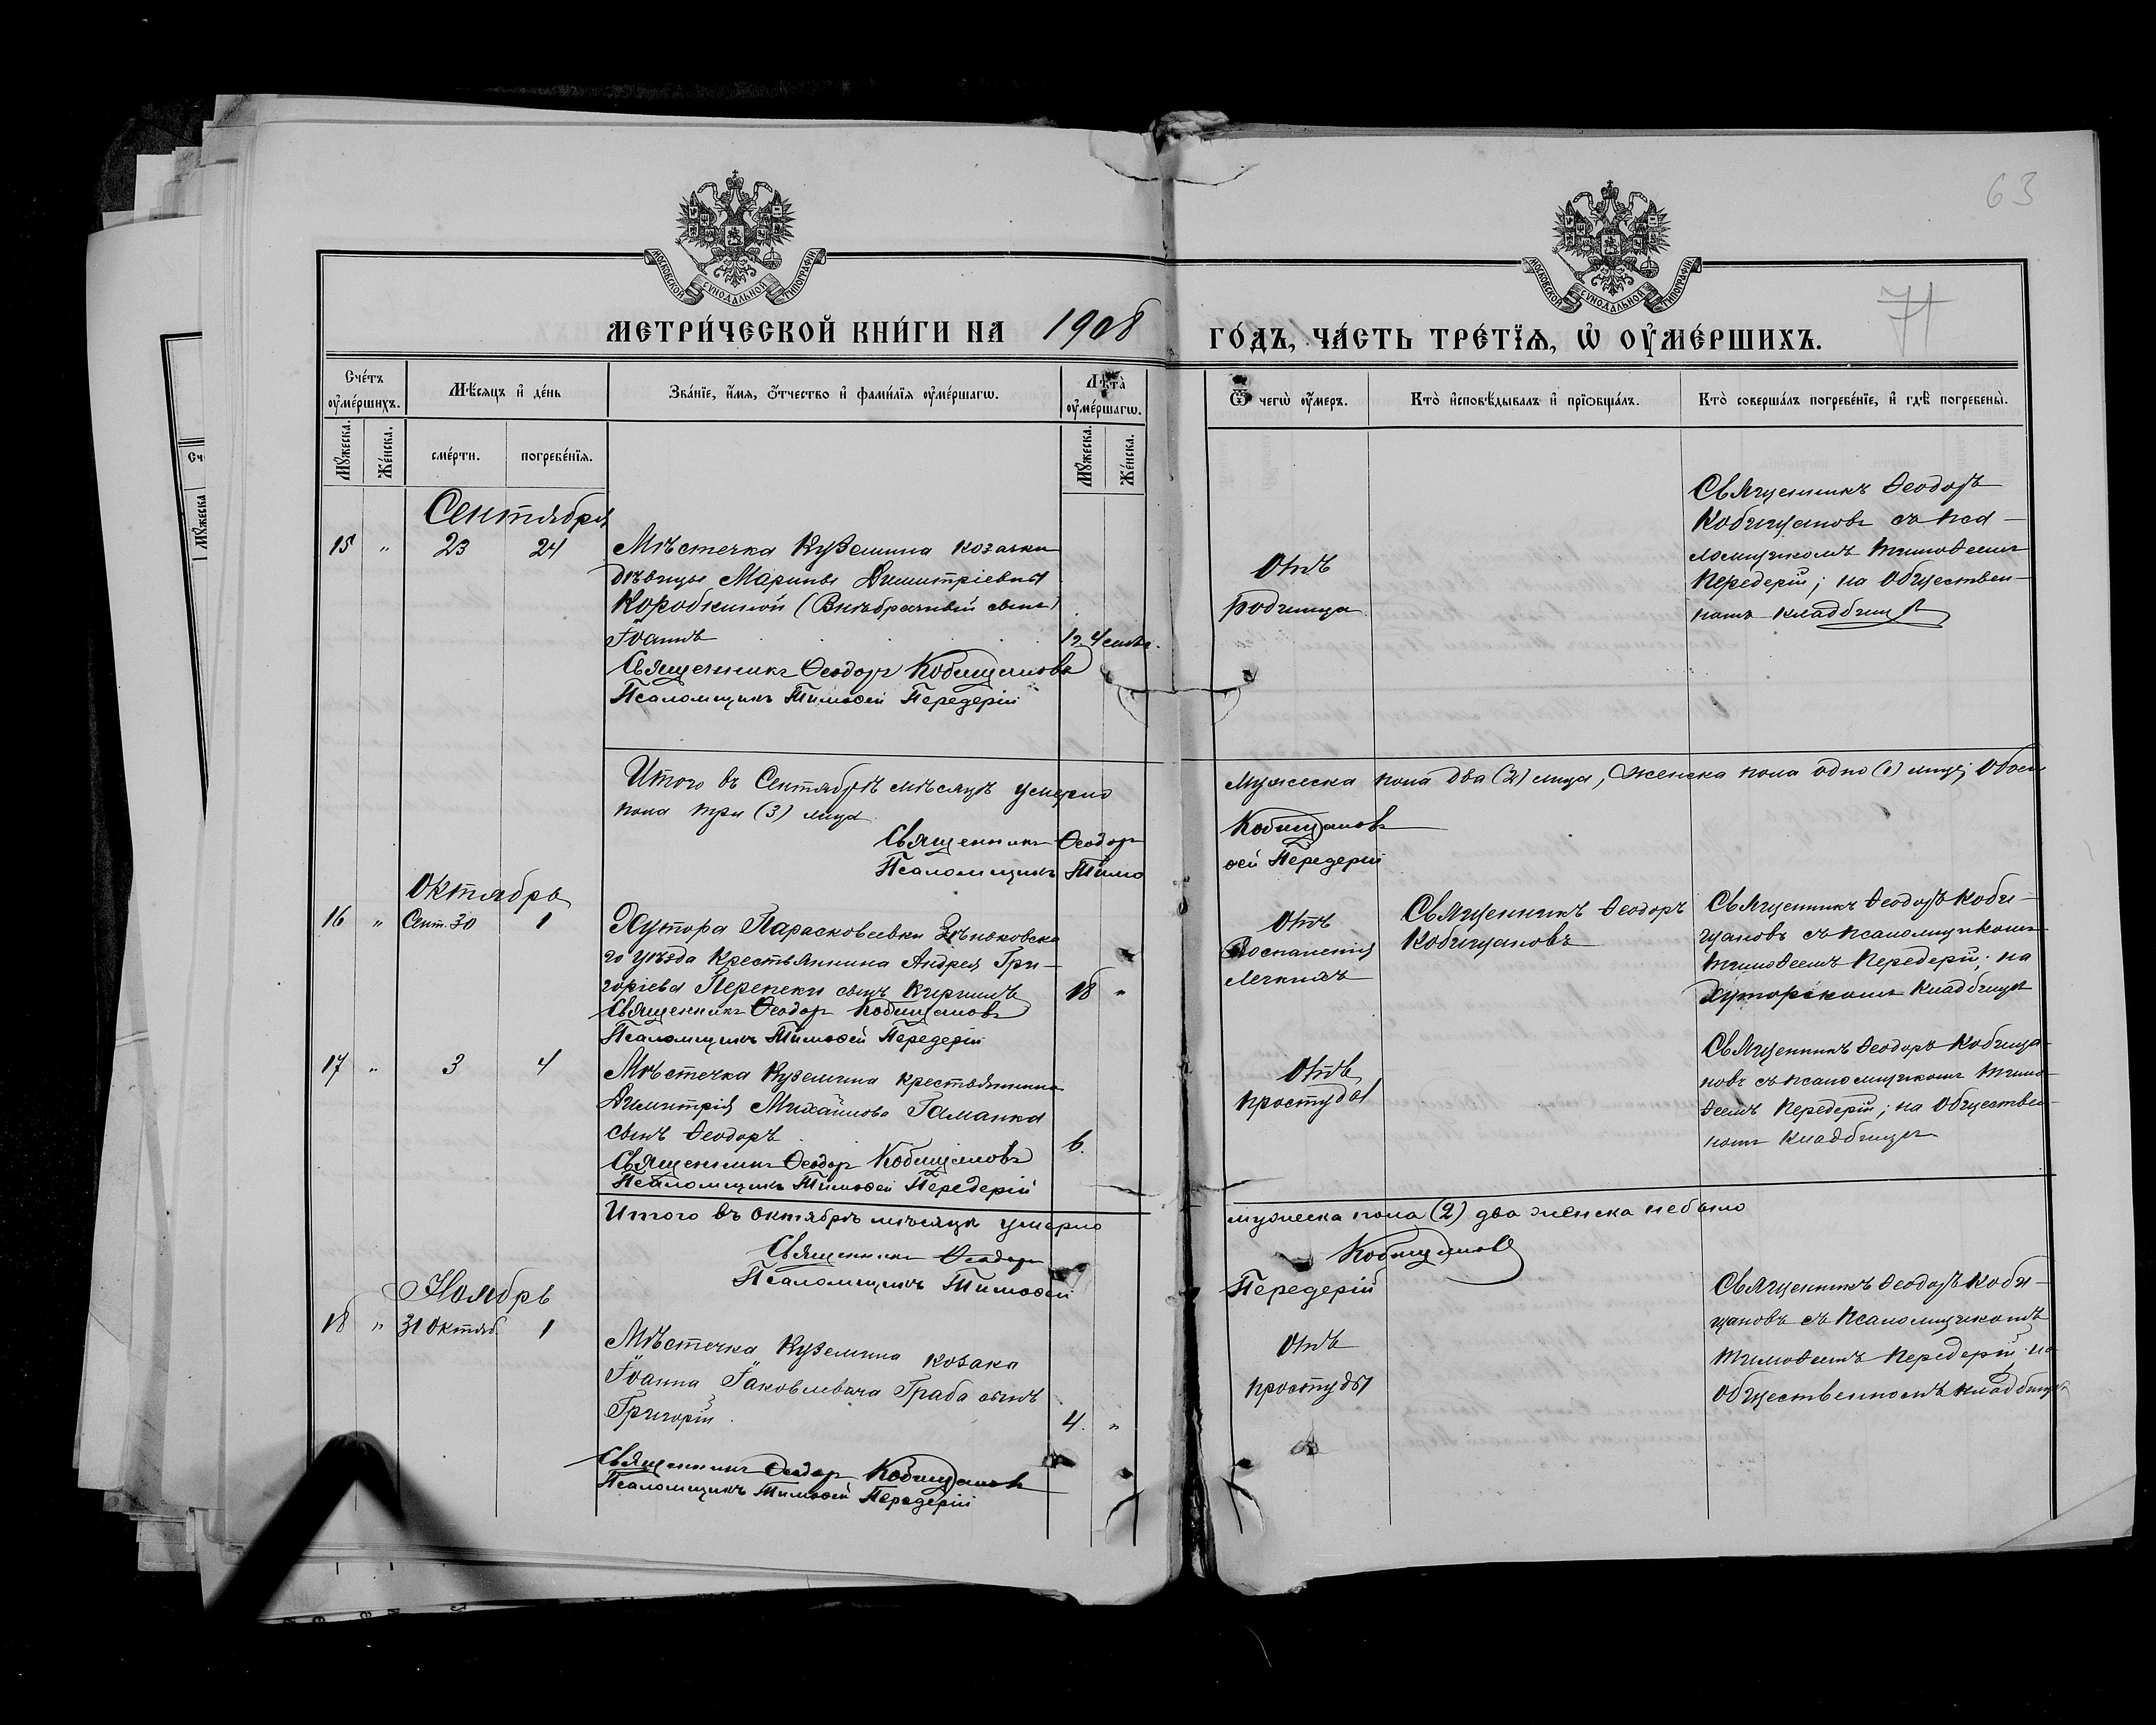 63
71
МОСКОВСКОЙ СѴНОДАЛЬНОЙ ТИПОГРАФІИ
МОСКОВСКОЙ СѴНОДАЛЬНОЙ ТИПОГРАФІИ
МЕТРИ́ЧЕСКОЙ КНИ́ГИ НА 1908 ГО́ДЪ, ЧА́СТЬ ТРЕ́ТЇѦ, Ѡ҆ ОУ҆МЕ́РШИХЪ.
Сче́тъ оу҆ме́ршихъ.
Мѣ́сяцъ и҆ де́нь
Зва́нїе, и҆́мя, ѻ҆́тчество и҆ фами́лїя оу҆ме́ршагѡ.
Лѣ́та оу҆ме́ршагѡ.
Ѿ чегѡ̀ оу҆́меръ.
Кто̀ и҆сповѣ́дывалъ и҆ прїѡбща́лъ.
Кто̀ соверша́лъ погребе́нїе, и҆ гдѣ̀ погребены̀.
Мꙋ́жеска.
Же́нска.
сме́рти.
погребе́нїя.
Мꙋ́жеска.
Же́нска.
Сентября
15 " 23 24
Мѣстечка Куземина козачки
дѣвицы Марины Димитріевны
Коробкиной (Внѣбрачный сынъ)
Іоаннъ
Священникъ Ѳеодоръ Кобищановъ
Псаломщикъ Тимоѳей Передерій
Отъ
родимца
Священникъ Ѳеодоръ
Кобищановъ съ пса-
ломщикомъ Тимоѳеемъ
Передерій; на Обществен-
номъ кладбищѣ
Итого въ Сентябрѣ мѣсяцѣ умерло мужеска пола два (2) лица, женска пола одно (1) лице; обоего
пола три (3) лица.
Священникъ Ѳеодоръ Кобищановъ
Псаломщикъ Тимоѳей Передерій
Октябрь
16 " Сент. 30 1
Хутора Парасковеевки Зѣньковска
го уѣзда Крестьянина Андрея Гри-
горіева Перепеки сынъ Кириллъ
18 "
Священникъ Ѳеодоръ Кобищановъ
Псаломщикъ Тимоѳей Передерій
Отъ
Воспаленія
легкихъ
Священникъ Ѳеодоръ
Кобищановъ
Священникъ Ѳеодоръ Коби-
щановъ съ псаломщикомъ
Тимоѳеемъ Передерій; на
Хуторскомъ Кладбищѣ
17 " 3 4
Мѣстечка Куземина крестьянина
Димитрія Михайлова Гаманка
сынъ Ѳеодоръ
6.
Священникъ Ѳеодоръ Кобищановъ
Псаломщикъ Тимоѳей Передерій
Отъ
простуды
Священникъ Ѳеодоръ Кобища-
новъ съ псаломщикомъ Тимо-
ѳеемъ Передерій; на Обществен-
номъ Кладбищѣ
Итого въ Октябрѣ мѣсяцѣ умерло мужеска пола (2) два женска небыло
Священникъ Ѳеодоръ Кобищановъ
Псаломщикъ Тимоѳей Передерій
Ноябрь
18 " 31 Октяб. 1
Мѣстечка Куземина козака
Іоанна Іаковлевича Граба сынъ
Григорій
4. "
Священникъ Ѳеодоръ Кобищановъ
Псаломщикъ Тимоѳей Передерій
Отъ
простуды
Священникъ Ѳеодоръ Коби-
щановъ съ Псаломщикомъ
Тимоѳеемъ Передерій; на
общественномъ кладбищѣ